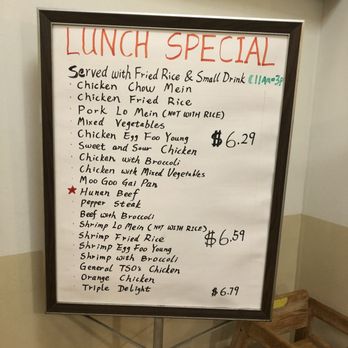 LUNCH SPECIAL
Served with Fried Rice & Small Drink (11AM-3P
Chicken Chow Mein
Chicken Fried Rice
Pork Lo Mein (NOT WITH RICE)
Mixed Vegetables
Chicken Egg Foo Young $6.29
Sweet and Sour Chicken
Chicken with Broccoli
Chicken with Mixed Vegetables
Moo Goo Gai Pan
★ Hunan Beef
Pepper Steak
Beef with Broccoli
Shrimp Lo Mein (NOT WITH RICE)
Shrimp Fried Rice $6.59
Shrimp Egg Foo Young
Shrimp with Broccoli
General TSO's Chicken
Orange Chicken
Triple Delight $6.79